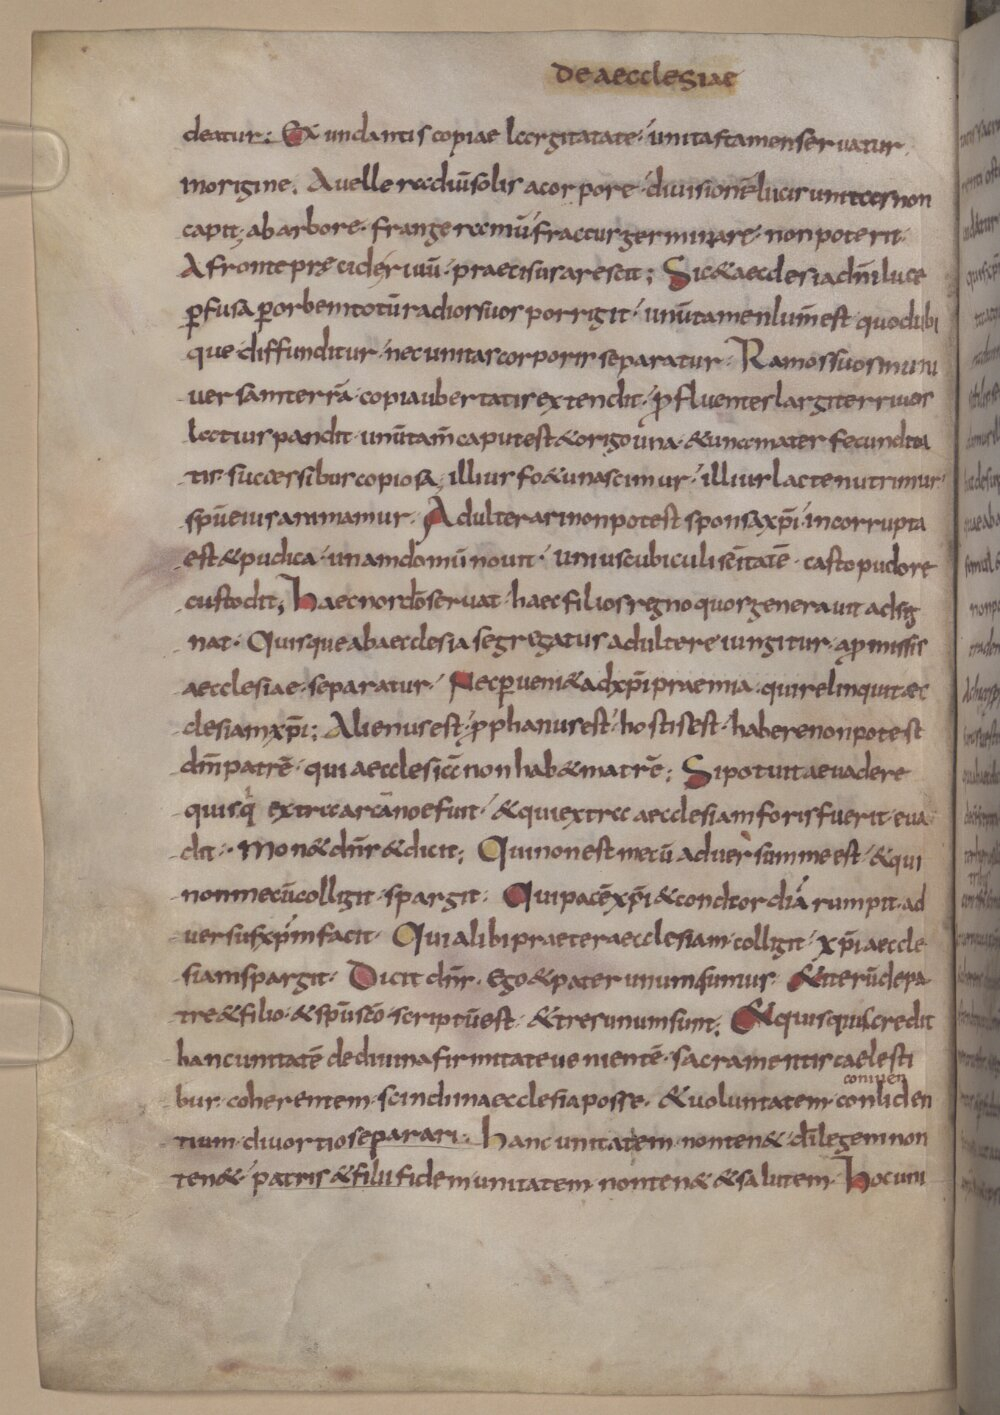 de aecclesiae
deatur; Exundantis copiae largitatate· unitas tamen servatur
in origine. Avelle radiū solis a corpore· divisionē lucis unitas non
capit; ab arbore· frange ramū· fractus germinare· non poterit·
A fronte pręcide rivū· praecisus arescit; Sic & aecclesia dn̄i luce
ꝑfusa ꝑ orbem totū radios suos porrigit· unū tamen lum̄ est quod ubi
que diffunditur· nec unitas corporis separatur· Ramos suos in uni
versam terrā· copia ubertatis extendit· ꝓfluentes largiter rivos
latius pandit· unū tam̄ caput est & origo una· & una mater fecundita
tis· successibus copiosa, illius fo&u nascimur· illius lacte nutrimur·
spū eius animamur· Adulterari non potest sponsa xp̄i· incorrupta
est & pudica· unam domū novit· unius cubiculi sc̄itatē· casto pudore
custodit; Haec nos dō servat· haec filios regno quos generavit adsig
nat· Quisque ab aecclesia segregatus adultere iungitur· a ꝓmissis
aecclesiae· separatur· Nec ꝑveni& ad xp̄i praemia· qui relinquit aec
clesiam xp̄i; Alienus est· ꝓphanus est· hostis est· habere non potest
dm̄ patrē· qui aecclesiā non hab& matrē; Si potuit aevadere
quisq̄ extra arcā noe fuit· & qui extra aecclesiam foris fuerit· eva
dit·· Mon& dn̄s & dicit; Qui non est mecū adversum me est· & qui
non mecū colligit· spargit· Qui pacē xp̄i & concordiā rumpit· ad
versus xp̄m facit· Qui alibi praeter aecclesiam· colligit· xp̄i aeccle
siam spargit· Dicit dn̄s· Ego & pater unum sumus· & iterū de pa
tre & filio· & spū sc̄o· scriptū est· & tres unum sunt; & quisquis credit
hanc unitatē de divina firmitate venientē· sacramentis caelesti
conniven
bus· coherentem· scindi in aecclesia posse· & voluntatem· conliden
tium· divortio separari· Hanc unitatem non ten&· dī legem non
ten&· patris & filii fidem unitatem non ten& & salutem· Hoc uni